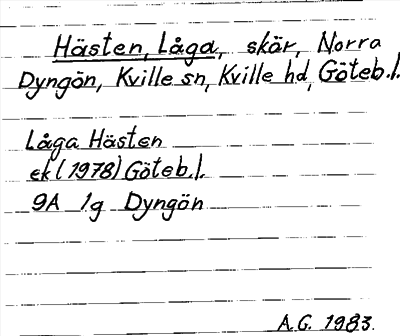 Hästen, Låga, skär, Norra
Dyngön, Kville sn, Kville hd, Göteb.l.
Låga Hästen
ek (1978) Göteb.l.
9A 1g Dyngön
A.G. 1983.